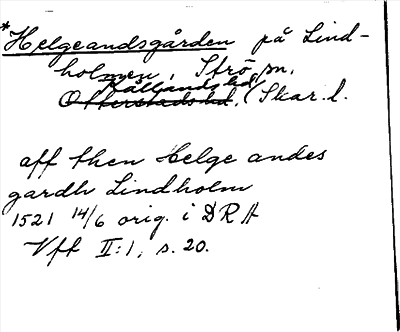 *Helgeandsgården på Lind-
holmen, Strö sn,
Kållands hd
Otterstads hd, (Skar. l.
aff then Helge andes
gardh Lindholm
1521 14/6 orig. i DRA
Vff II:1, s. 20.